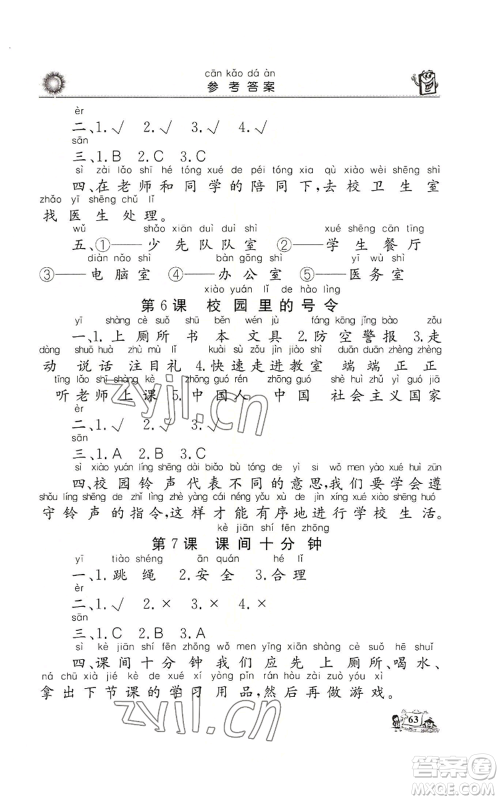 cān kǎo dá àn
参考答案
èr
二、1.√ 2.√ 3.√ 4.√
sān
三、1.B 2.C 3.C
sì zài lǎo shī hé tóng xué de péi tóng xià qù xiào wèi shēng shì
四、在老师和同学的陪同下,去校卫生室
zhǎo yī shēng chǔ lǐ
找医生处理。
wǔ shào xiān duì duì shì xué shēng cān tīng
五、①——少先队队室 ②——学生餐厅
diàn nǎo shì bàn gōng shì yī wù shì
③——电脑室 ④——办公室 ⑤——医务室
xiào yuán lǐ de hào lìng
第6课 校园里的号令
yī shàng cè suǒ shū běn wén jù fáng kōng jǐng bào zǒu
一、1.上厕所 书本 文具 2.防空警报 走
dòng shuō huà zhù mù lǐ kuài sù zǒu jìn jiào shì duān duān zhèng zhèng
动 说话 注目礼 4.快速走进教室 端端正正
tīng lǎo shī shàng kè zhōng guó rén zhōng guó shè huì zhǔ yì guó jiā
听老师上课 5.中国人 中国 社会主义国家
èr
二、1.√ 2.√ 3.√ 4.√
sān
三、1.A 2.C 3.C
sì xiào yuán líng shēng dài biǎo bù tóng de yì si wǒ men yào zūn
四、校园铃声代表不同的意思,我们要遵
shǒu líng shēng de zhǐ lìng zhè yàng cái néng yǒu xù de jìn xíng xué xiào shēng huó
守铃声的指令,这样才能有序地进行学校生活。
kè jiān shí fēn zhōng
第7课 课间十分钟
yī tiào shéng ān quán hé lǐ
一、1.跳绳 2.安全 3.合理
èr
二、1.√ 2.× 3.× 4.×
sān
三、1.C 2.B 3.A
sì kè jiān shí fēn zhōng wǒ men yīng xiān shàng cè suǒ hē shuǐ
四、课间十分钟我们应先上厕所、喝水、
ná chū xià jié kè de xué xí yòng pǐn rán hòu zài zuò yóu xì
拿出下节课的学习用品,然后再做游戏。
63
zyjl.cn
zyjl.cn
答案圈
MXQE.COM